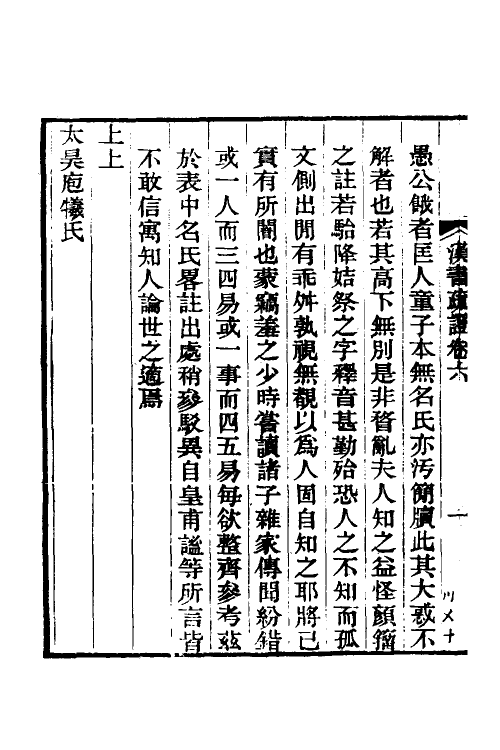 漢書疏證卷六
一
愚公餓者匡人童子本無名氏亦汚簡牘此其大惑不
解者也若其高下無別是非瞀亂夫人知之益怪顏籀
之註若駘降姞祭之字釋音甚勤殆恐人之不知而孤
文側出閒有乖舛孰視無覩以爲人固自知之耶將己
實有所闇也蒙竊羞之少時嘗讀諸子雜家傳聞紛錯
或一人而三四易或一事而四五易每欲整齊參考茲
於表中名氏畧註出處稍參駁異自皇甫謐等所言皆
不敢信寓知人論世之適焉
上上
太昊庖犧氏